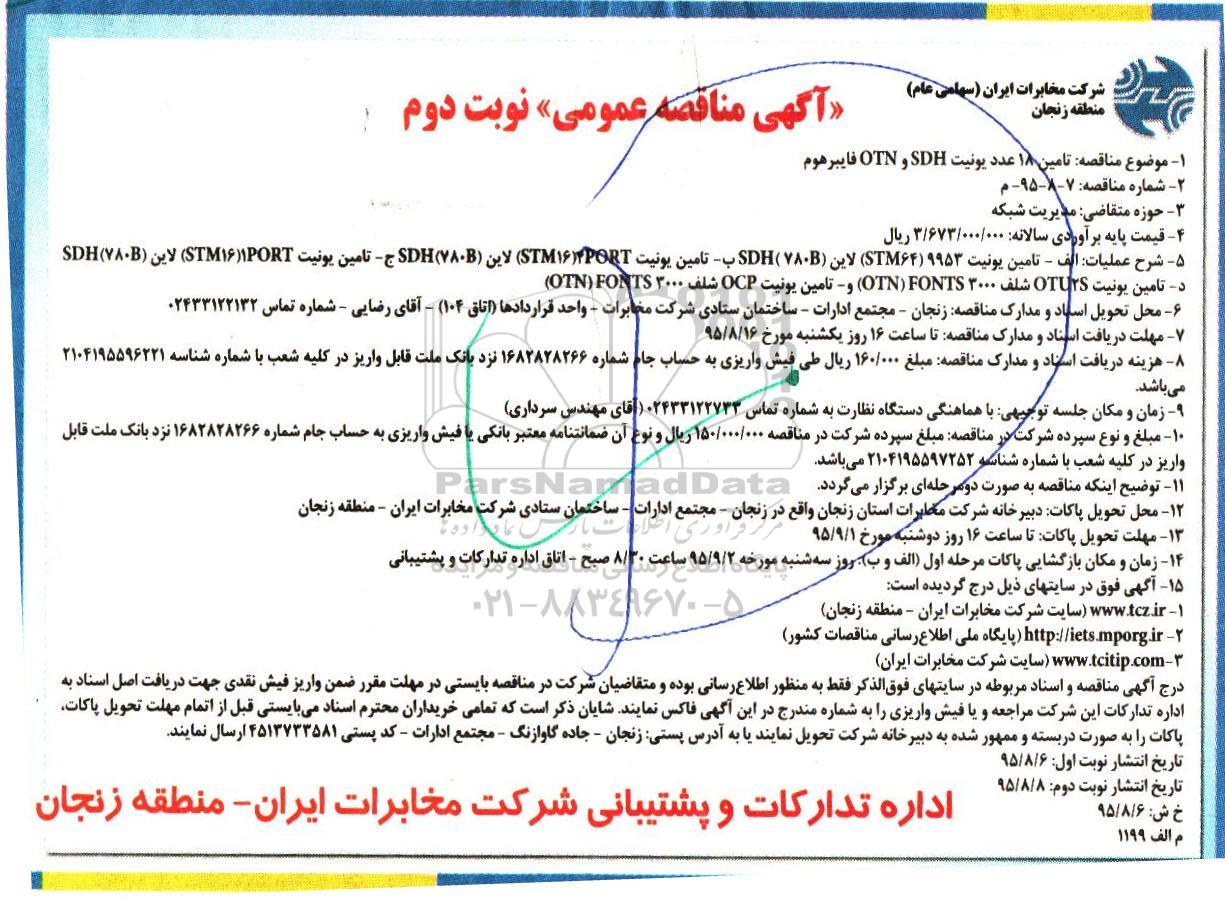 شرکت مخابرات ایران (سهامی عام)
منطقه زنجان
«آگهی مناقصه عمومی» نوبت دوم
۱- موضوع مناقصه: تامین ۱۸ عدد یونیت SDH و OTN فایبرهوم
۲- شماره مناقصه: ۷-۸-۹۵- م
۳- حوزه متقاضی: مدیریت شبکه
۴- قیمت پایه برآوردی سالانه: ۳/۶۷۳/۰۰۰/۰۰۰ ریال
۵- شرح عملیات: الف - تامین یونیت ۹۹۵۳ (STM۶۴) لاین (۷۸۰B )SDH ب- تامین یونیت STM۱۶)۲PORT) لاین (۷۸۰B)SDH ج- تامین یونیت STM۱۶)۱PORT) لاین (۷۸۰B)SDH
د- تامین یونیت OTU۲S شلف ۳۰۰۰ OTN) FONTS) و- تامین یونیت OCP شلف ۳۰۰۰ OTN) FONTS)
۶- محل تحویل اسناد و مدارک مناقصه: زنجان - مجتمع ادارات - ساختمان ستادی شرکت مخابرات - واحد قراردادها (اتاق ۱۰۴) - آقای رضایی - شماره تماس ۰۲۴۳۳۱۲۲۱۳۲
۷- مهلت دریافت اسناد و مدارک مناقصه: تا ساعت ۱۶ روز یکشنبه مورخ ۹۵/۸/۱۶
۸- هزینه دریافت اسناد و مدارک مناقصه: مبلغ ۱۶۰/۰۰۰ ریال طی فیش واریزی به حساب جام شماره ۱۶۸۲۸۲۸۲۶۶ نزد بانک ملت قابل واریز در کلیه شعب با شماره شناسه ۲۱۰۴۱۹۵۵۹۶۲۲۱
می‌باشد.
۹- زمان و مکان جلسه توجیهی: با هماهنگی دستگاه نظارت به شماره تماس ۰۲۴۳۳۱۲۲۷۳۳ (آقای مهندس سرداری)
۱۰- مبلغ و نوع سپرده شرکت در مناقصه: مبلغ سپرده شرکت در مناقصه ۱۵۰/۰۰۰/۰۰۰ ریال و نوع آن ضمانتنامه معتبر بانکی یا فیش واریزی به حساب جام شماره ۱۶۸۲۸۲۸۲۶۶ نزد بانک ملت قابل
واریز در کلیه شعب با شماره شناسه ۲۱۰۴۱۹۵۵۹۷۲۵۲ می‌باشد.
۱۱- توضیح اینکه مناقصه به صورت دومرحله‌ای برگزار می‌گردد.
ParsNamadData
۱۲- محل تحویل پاکات: دبیرخانه شرکت مخابرات استان زنجان واقع در زنجان - مجتمع ادارات - ساختمان ستادی شرکت مخابرات ایران - منطقه زنجان
مرکز فرآوری اطلاعات پارس نماد داده ها
۱۳- مهلت تحویل پاکات: تا ساعت ۱۶ روز دوشنبه مورخ ۹۵/۹/۱
۱۴- زمان و مکان بازگشایی پاکات مرحله اول (الف و ب): روز سه‌شنبه مورخه ۹۵/۹/۲ ساعت ۸/۳۰ صبح - اتاق اداره تدارکات و پشتیبانی
پایگاه اطلاع رسانی مناقصه و مزایده
۱۵- آگهی فوق در سایتهای ذیل درج گردیده است:
۱- www.tcz.ir (سایت شرکت مخابرات ایران - منطقه زنجان)
۰۲۱-۸۸۳۴۹۶۷۰-۵
۲- http://iets.mporg.ir (پایگاه ملی اطلاع‌رسانی مناقصات کشور)
۳- www.tcitip.com (سایت شرکت مخابرات ایران)
درج آگهی مناقصه و اسناد مربوطه در سایتهای فوق‌الذکر فقط به منظور اطلاع‌رسانی بوده و متقاضیان شرکت در مناقصه بایستی در مهلت مقرر ضمن واریز فیش نقدی جهت دریافت اصل اسناد به
اداره تدارکات این شرکت مراجعه و یا فیش واریزی را به شماره مندرج در این آگهی فاکس نمایند. شایان ذکر است که تمامی خریداران محترم اسناد می‌بایستی قبل از اتمام مهلت تحویل پاکات،
پاکات را به صورت دربسته و ممهور شده به دبیرخانه شرکت تحویل نمایند یا به آدرس پستی: زنجان - جاده گاوازنگ - مجتمع ادارات - کد پستی ۴۵۱۳۷۳۳۵۸۱ ارسال نمایند.
تاریخ انتشار نوبت اول: ۹۵/۸/۶
تاریخ انتشار نوبت دوم: ۹۵/۸/۸
خ ش: ۹۵/۸/۶
م الف ۱۱۹۹
اداره تدارکات و پشتیبانی شرکت مخابرات ایران- منطقه زنجان